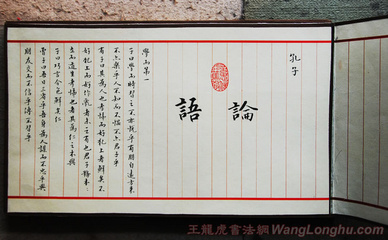 孔子
論語
學而第一
子曰學而時習之不亦說乎有朋自遠方來
不亦樂乎人不知而不慍不亦君子乎
有子曰其為人也孝悌而好犯上者鮮矣不
好犯上而好作亂者未之有也君子務本
本立而道生孝悌也者其為仁之本與
子曰巧言令色鮮矣仁
曾子曰吾日三省吾身為人謀而不忠乎與
朋友交而不信乎傳不習乎
王龍虎書法網WangLonghu.com